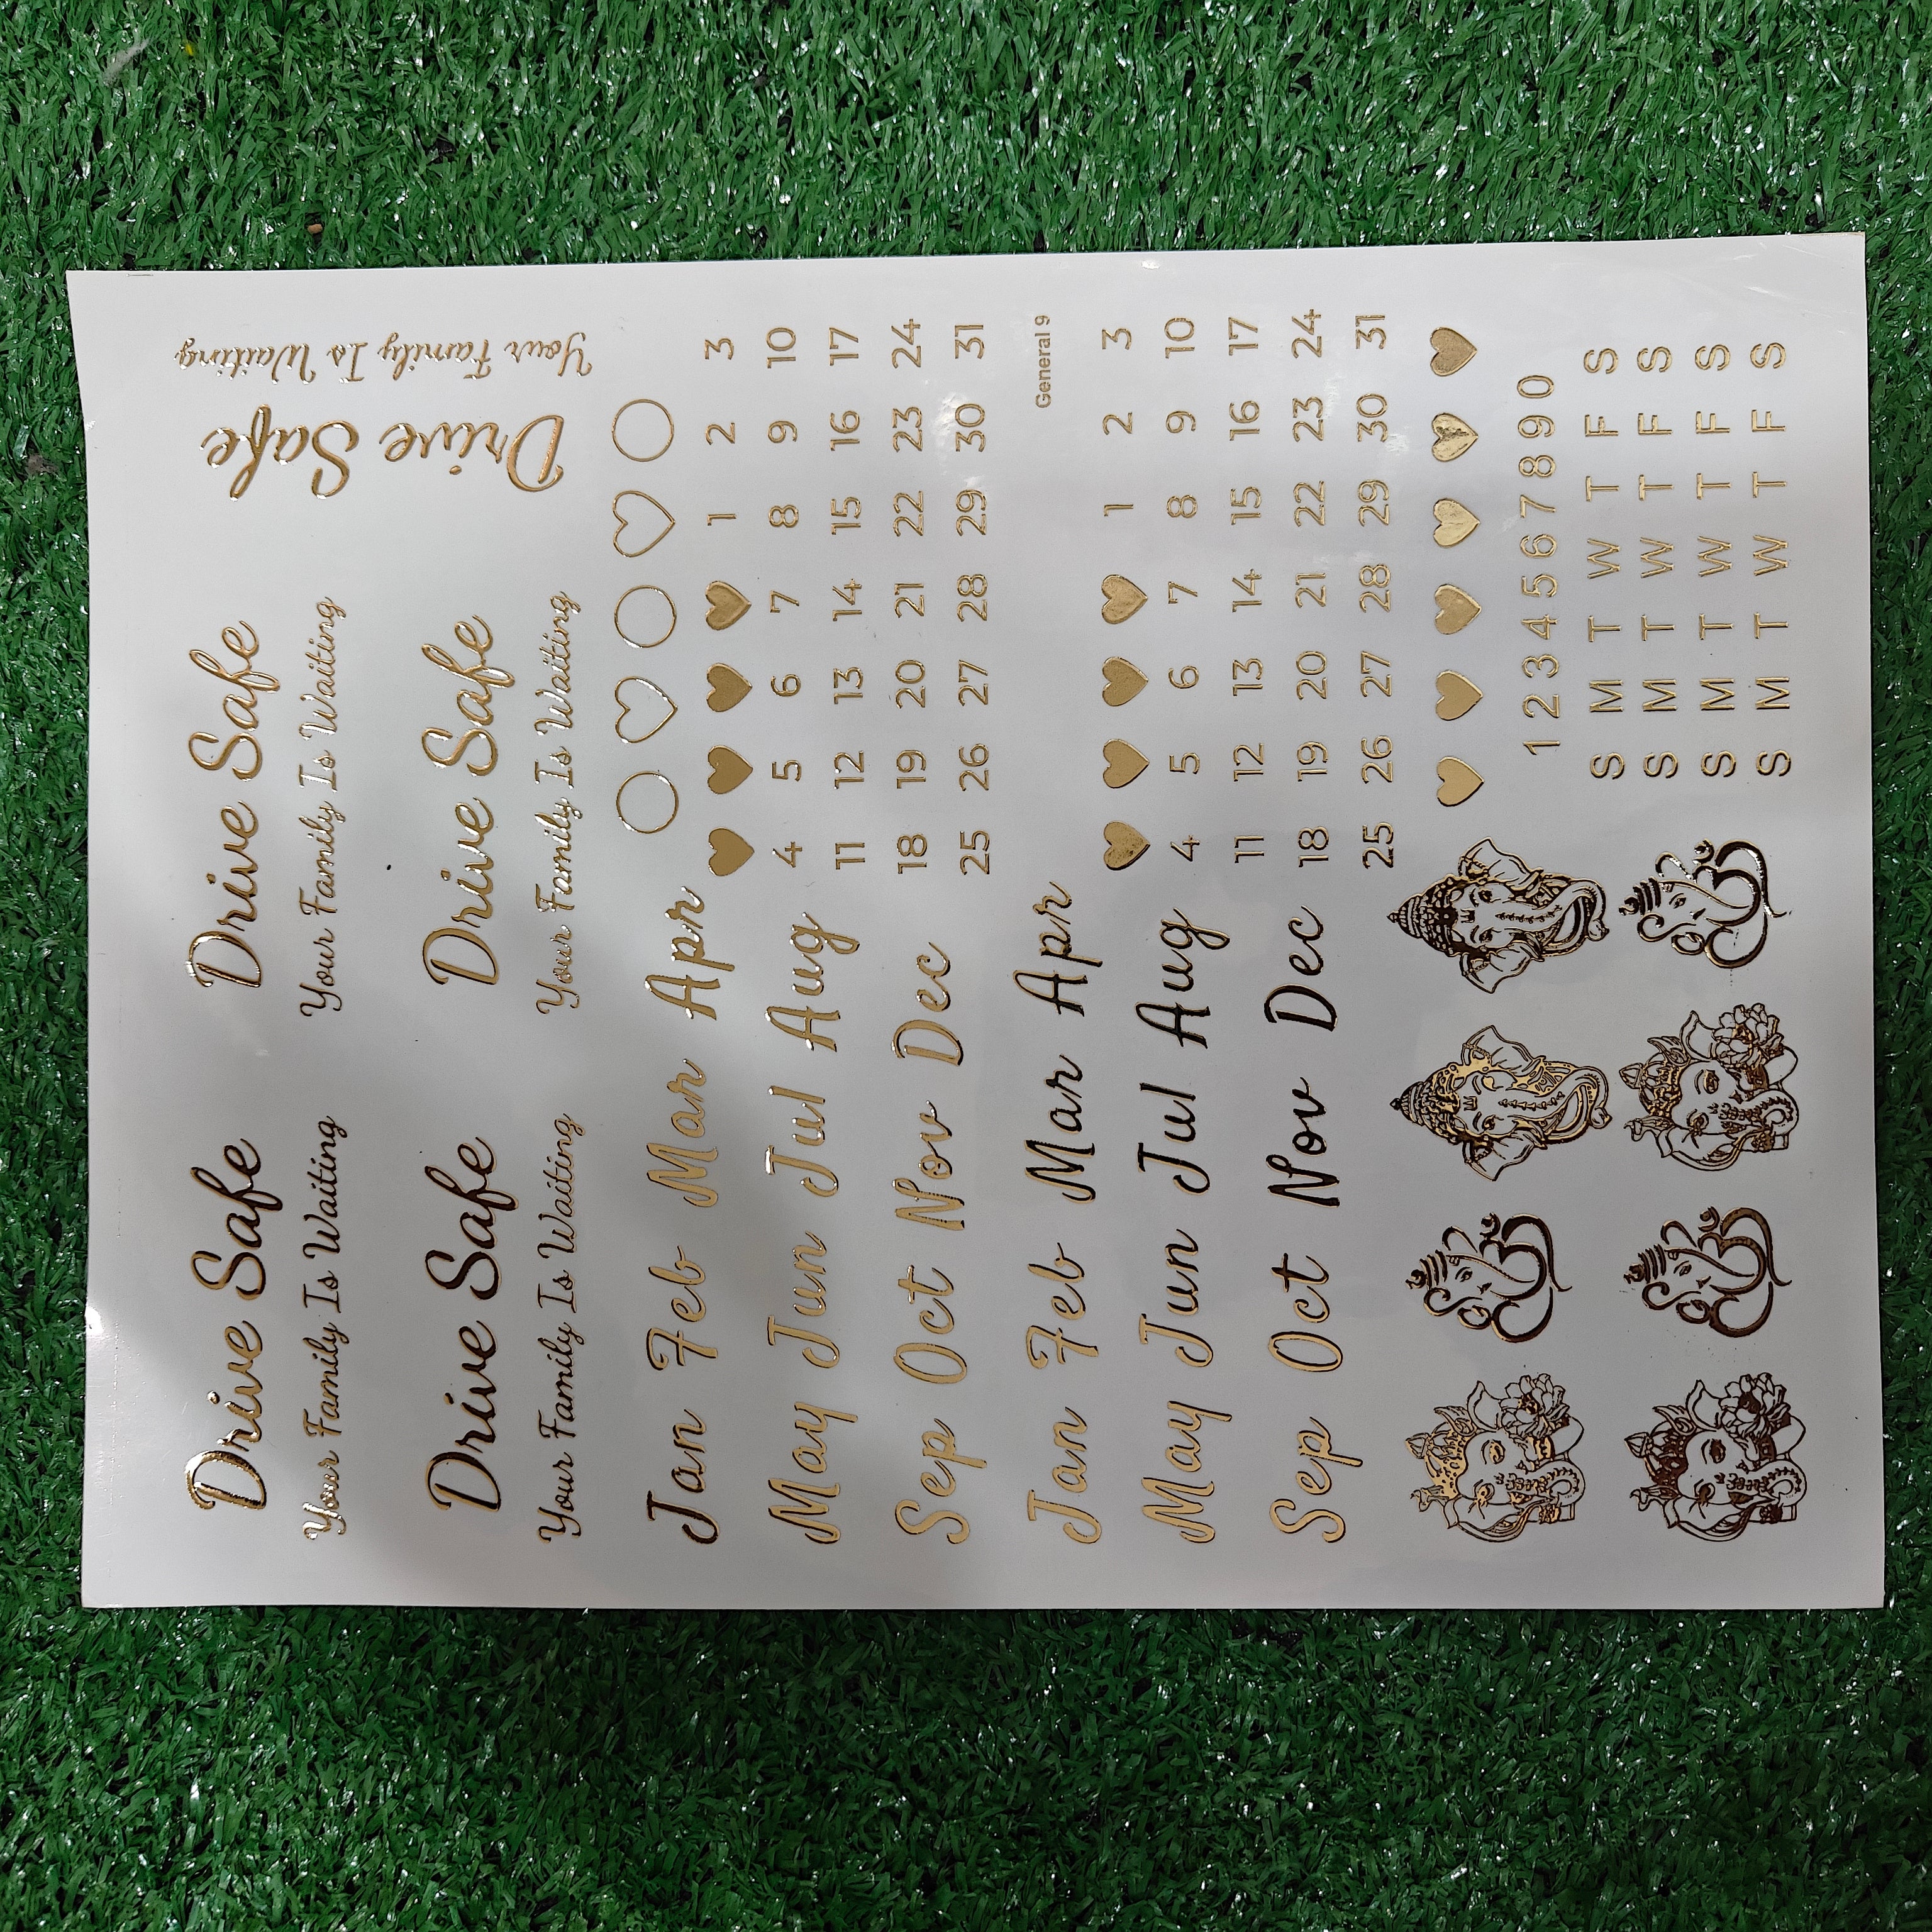 Drive Safe
Your Family Is Waiting
Drive Safe
Your Family Is Waiting
Drive Safe
Your Family Is Waiting
Drive Safe
Your Family Is Waiting
Drive Safe
Your Family Is Waiting
Jan Feb Mar Apr
May Jun Jul Aug
Sep Oct Nov Dec
1 2 3
4 5 6 7 8 9 10
11 12 13 14 15 16 17
18 19 20 21 22 23 24
25 26 27 28 29 30 31
General 9
Jan Feb Mar Apr
May Jun Jul Aug
Sep Oct Nov Dec
1 2 3
4 5 6 7 8 9 10
11 12 13 14 15 16 17
18 19 20 21 22 23 24
25 26 27 28 29 30 31
1 2 3 4 5 6 7 8 9 0
S M T W T F S
S M T W T F S
S M T W T F S
S M T W T F S